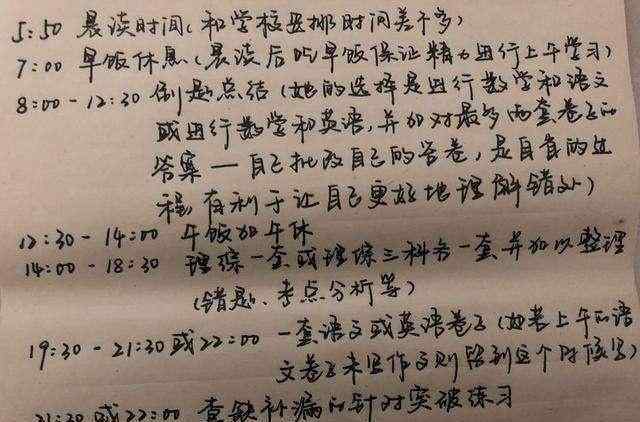 5:50 晨读时间(和学校安排时间差不多)
7:00 早饭休息(晨读后吃早饭保证精力进行上午学习)
8:00-12:30 例题总结(她的选择是进行数学和语文
或进行数学和英语,并加对最多两套卷子的
答案—自己批改自己的答卷,是自省的过
程,有利于让自己更好地理解错处)
12:30-14:00 午饭加午休
14:00-18:30 理综一套或理综三科各一套并加以整理
(错题、考点分析等)
19:30-21:30或22:00 一套语文或英语卷子(如果上午的语
文卷子未写作文则留到这个时候写)
21:30或22:00 查缺补漏的针对突破练习